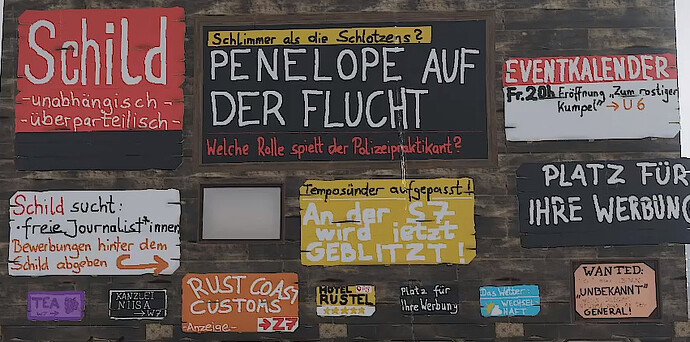 Schild
-unabhängisch-
-überparteilisch-
Schlimmer als die Schlotzens?
PENELOPE AUF
DER FLUCHT
Welche Rolle spielt der Polizeipraktikant?
EVENTKALENDER
Fr. 20h Eröffnung "Zum rostiger
Kumpel" → U6
Schild sucht:
·freie Journalist*innen
Bewerbungen hinter dem
Schild abgeben
Temposünder aufgepasst!
An der S7
wird jetzt
GEBLITZT!
PLATZ FÜR
IHRE WERBUNG
TEA
KANZLEI
NIISA
→W7
RUST COAST
CUSTOMS
-Anzeige- →Z7
HOTEL
RUSTEL
Platz für
Ihre Werbung
Das Wetter:
WECHSEL-
HAFT
WANTED:
"UNBEKANNT"
GENERAL!